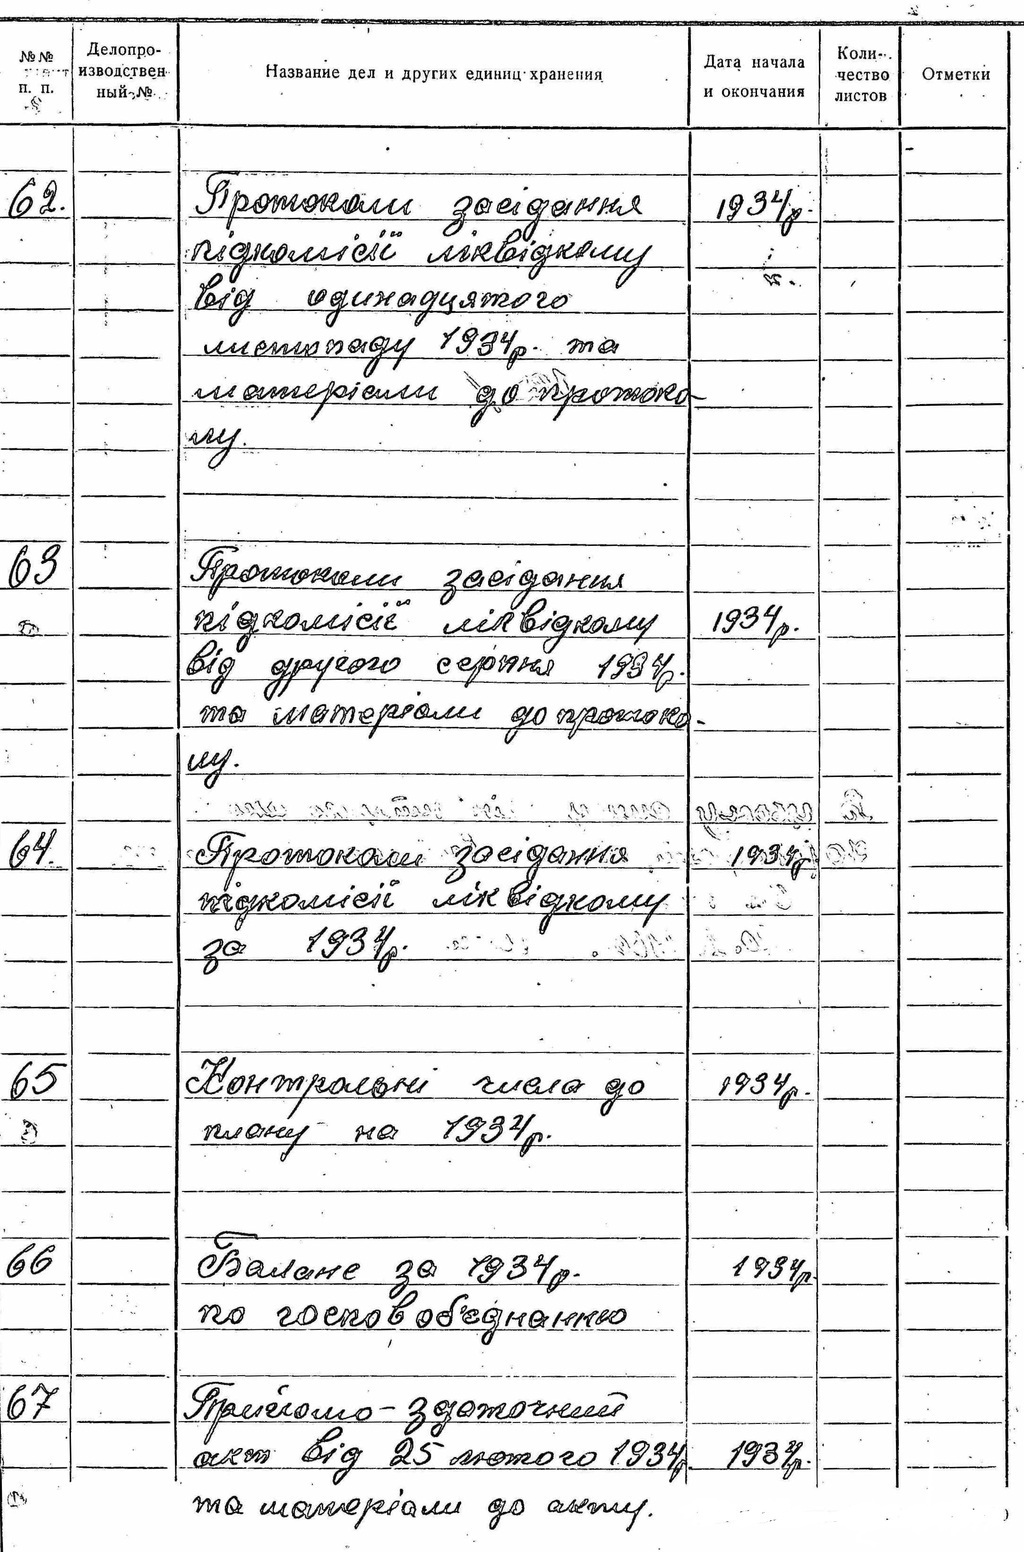 №№ п. п.
Делопроизводствен ный №
Название дел и других единиц хранения
Дата начала и окончания
Коли-чество листов
Отметки
62. Протоколи засідання 1934р.
підкомісії ліквідкому
від одинадцятого
листопаду 1934р. та
матеріали до протоко-
лу.
63 Протоколи засідання
підкомісії ліквідкому 1934р.
від другого серпня 1934р.
та матеріали до протоко-
лу.
64. Протоколи засідання 1934р
підкомісії ліквідкому
за 1934р.
65 Контрольні числа до 1934р.
плану на 1934р.
66 Баланс за 1934р. 1934р.
по госпов об'єднанню
67 Прийомо-здаточний
акт від 25 лютого 1934р 1934р.
та матеріали до акту.